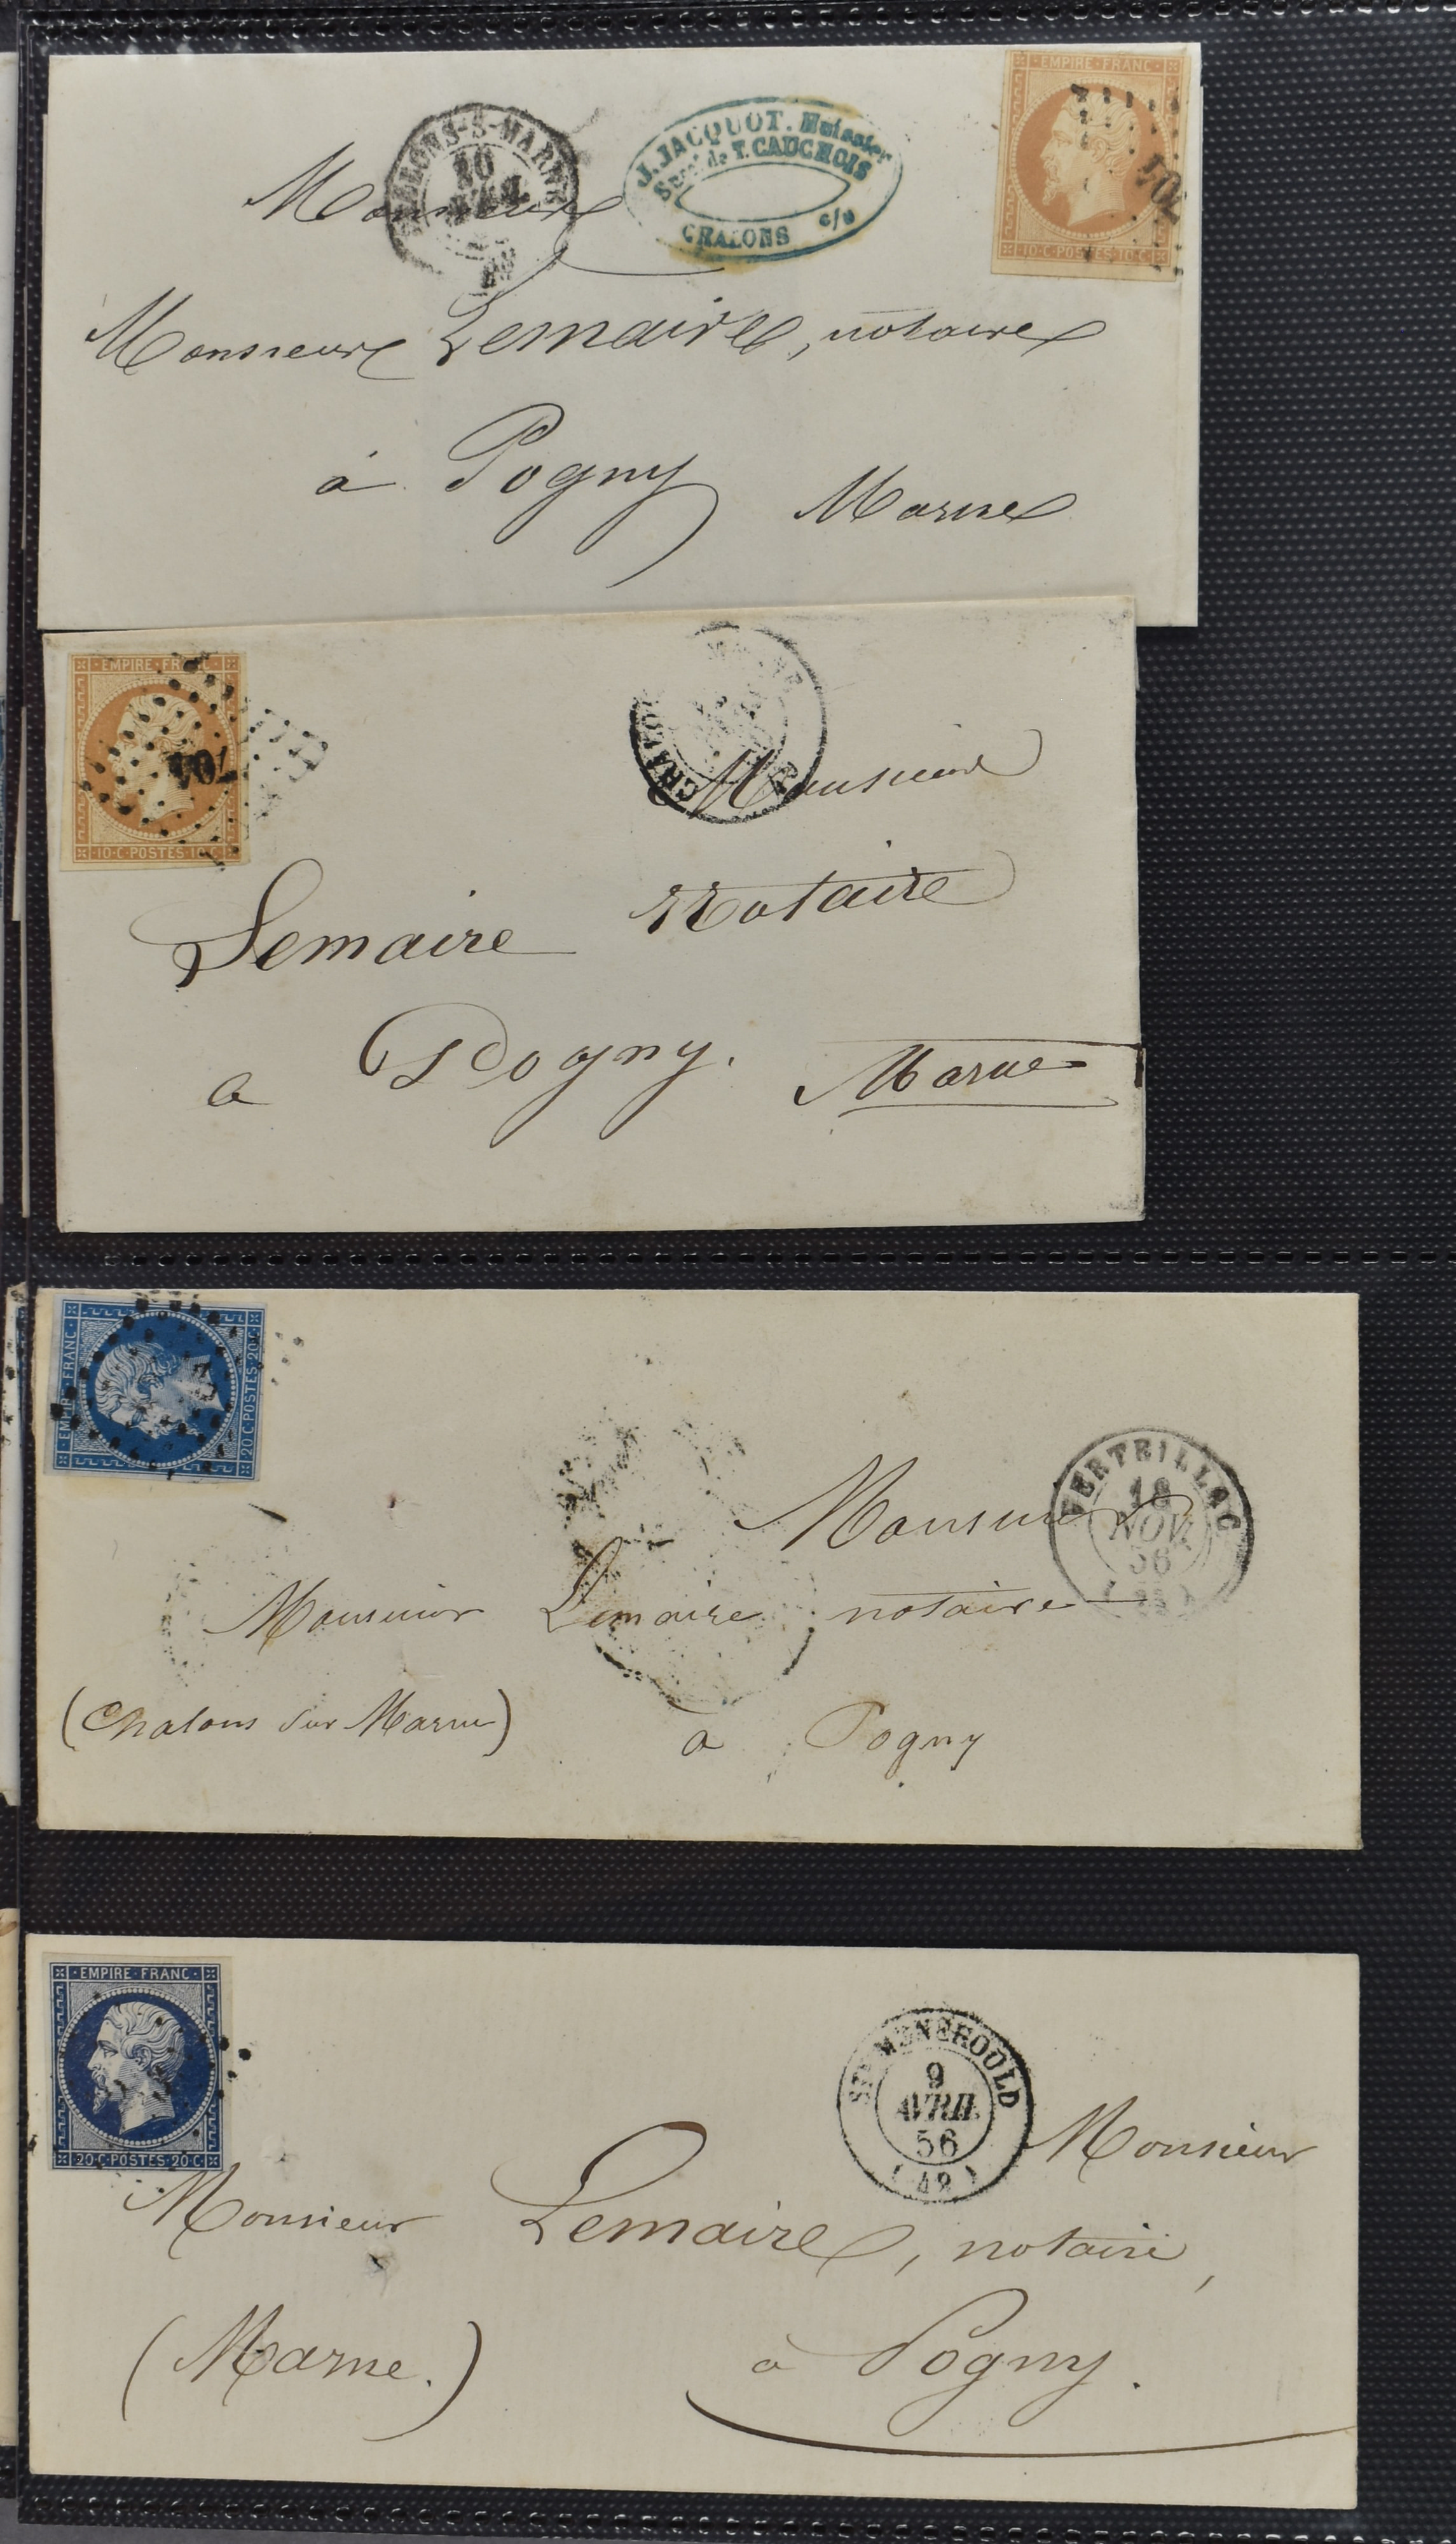 EMPIRE FRANC
10·C·POSTES·10·C
701
CHALONS-S-MARNE
10
J. JACQUOT. Huissier
Sucr de T. CAUCHOIS
CHALONS c/s
Monsieur
Monsieur Lemaire, notaire
à Pogny
Marne
EMPIRE FRANC
10·C·POSTES·10·C
701
Monsieur
Lemaire Notaire
a Pogny.
Marne
EMPIRE FRANC
20·C·POSTES·20·C
VERTEILLAC
18
NOV.
56
Monsieur
Monsieur Lemaire notaire
(Chalons sur Marne)
à Pogny
EMPIRE FRANC
20·C·POSTES·20·C
STE MENEHOULD
9
AVRIL
56
Monsieur
Monsieur Lemaire, notaire,
(Marne.)
à Pogny.